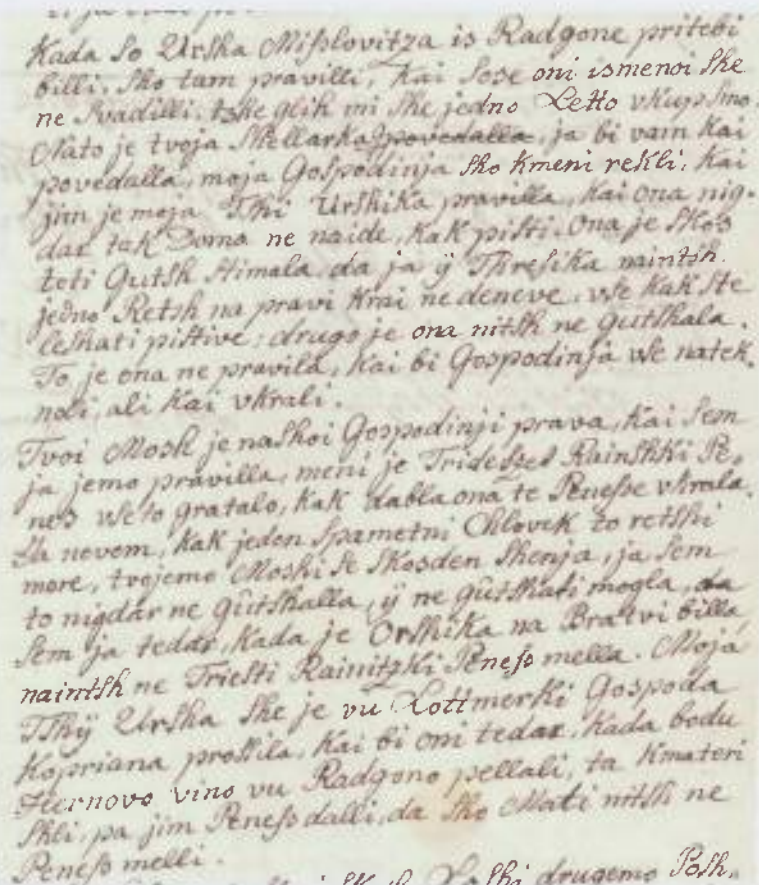 Kada so Urſhka Miſslovitza is Radgone pritebi
billi, ſko tam pravilli, Kai ſose oni ismenoi ſke
ne ſvadilli, tske glih mi ſke jedno Letto vkup ſmo.
Nato je tvoja Shellarka povedalla, ja bi vam Kai
povedalla, moja Goſpodinja ſko kmeni rekli, Kai
jim je moja Thi Urſhika pravilla, Kai ona nig-
dar tak Doma ne naide, Kak piſti. Ona je ſkos
teti Gutſh ſtimala, da ja ÿ Threſika naintſh
jedno Retsh na pravi Krai ne deneve, vſe kak ſte
leſhati piſtive; drugo je ona nitſh ne gutſhala.
To je ona ne pravila, Kai bi Goſpodinja vſe natek-
noli, ali Kai vkrali.
Tvoi Moſh je naſhoi Goſpodinji prava, Kai ſem
ja jemo pravilla, meni je Trideſzet Rainſhki Pe-
nes vſe to gratalo, Kak dabla ona te Peneſse vkrala.
Ja nevem, Kak jeden ſpametni Chlovik to retſhi
more, tvojemo Moshi ſe ſkosden ſhenja, ja ſem
to nigdar ne gütſhalla, ÿ ne gütſhati mogla, da
ſem ja tedar, Kada je Orſhika na Bratvi billa,
naintſh ne Trieſti Rainitzki Peneſs mella. Moja
Thÿ Urſhka ſhe je vu Lottmerki Goſpoda
Kopriana proſsila, Kai bi oni tedar, Kada bodu
vino vu Radgono pellali, ta Kmateri
ſhli, pa jim Peneſs dalli, da ſko Mati nitſh ne
Peneſs melli.
drugemo